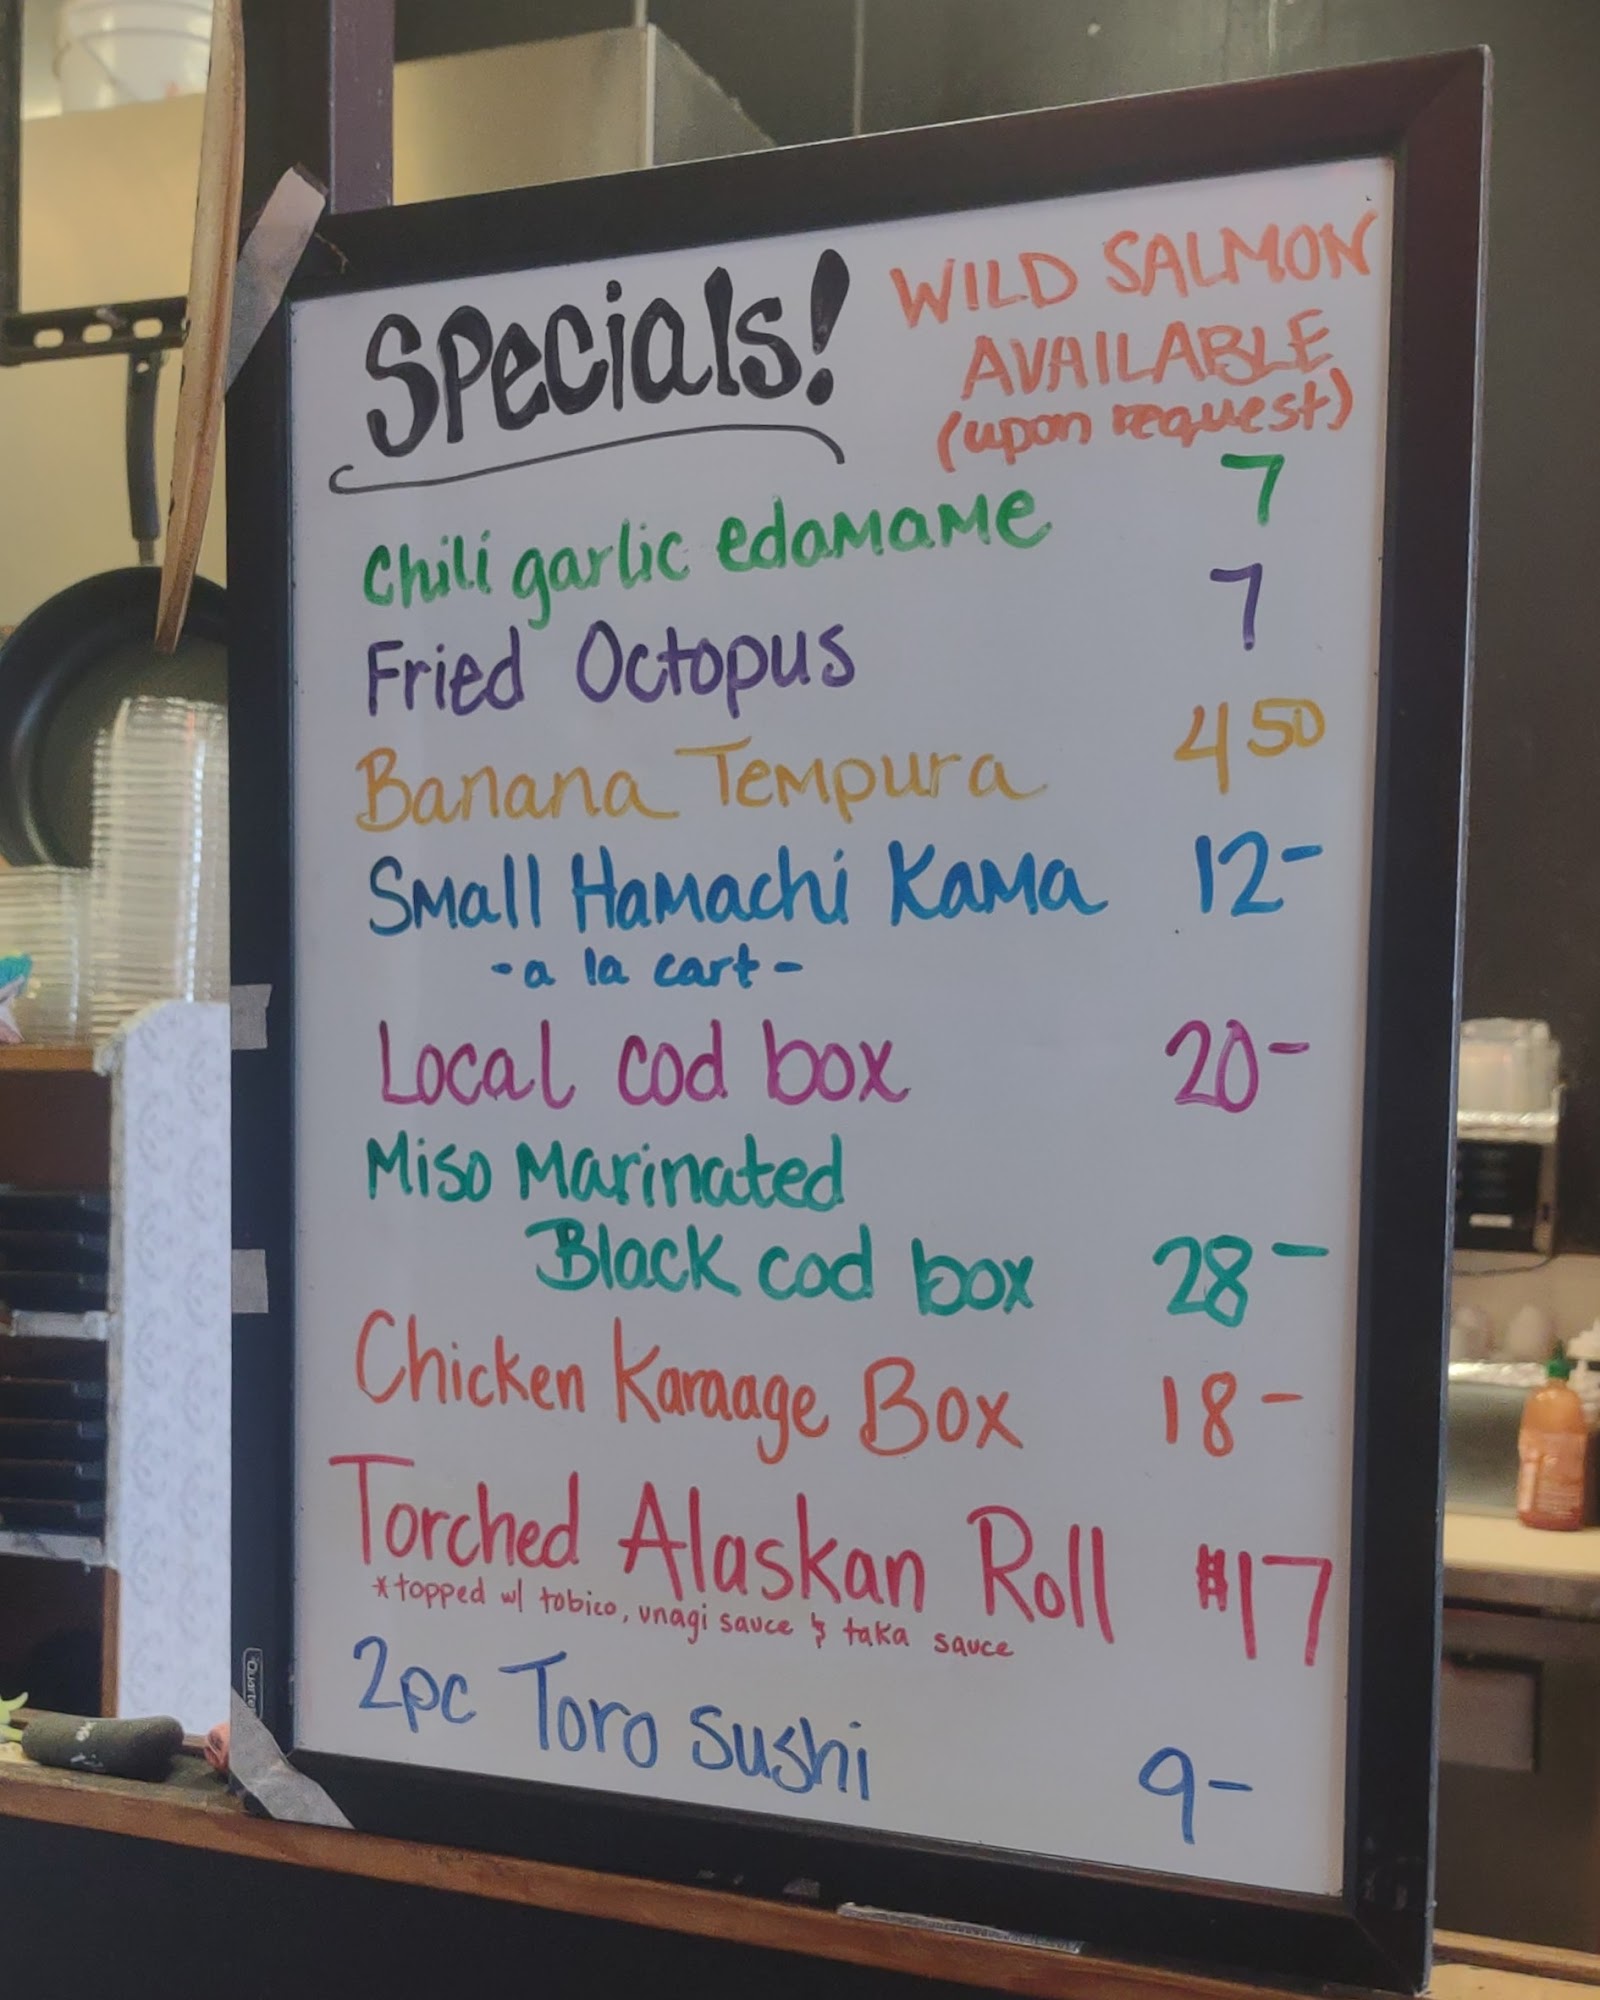 Specials!
WILD SALMON
AVAILABLE
(upon request)
Chili garlic edamame 7
Fried Octopus 7
Banana Tempura 4 50
Small Hamachi Kama 12-
- a la cart -
Local cod box 20-
Miso Marinated
Black cod box 28-
Chicken Karaage Box 18-
Torched Alaskan Roll $17
*topped w/ tobico, unagi sauce & taka sauce
2pc Toro Sushi 9-